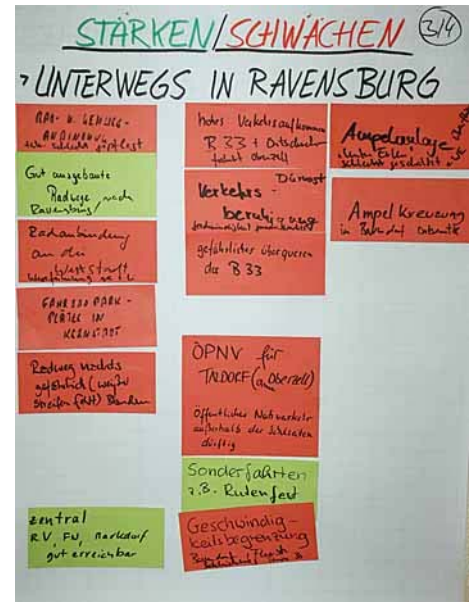 STÄRKEN/SCHWÄCHEN 3/4
UNTERWEGS IN RAVENSBURG
RAD- U. GEHWEG-
ANBINDUNG
schlecht gepflegt
Gut ausgebaute
Radwege nach
Ravensburg
Radanbindung
an die
Weststadt
FAHRRADPARK-
PLÄTZE IN
KERNSTADT
Radweg nachts
gefährlich (weiße
streifen fehlt)
zentral
RV, FN, Markdorf
gut erreichbar
hohes Verkehrsaufkommen
B 33 + Ortsdurchfahrt
Verkehrs-
beruhigung
gefährliches überqueren
der B 33
ÖPNV für
TALDORF (und Oberzell)
Öffentlicher Nahverkehr
außerhalb der Schulzeiten
dürftig
Sonderfahrten
z.B. Rutenfest
Geschwindig-
keitsbegrenzung
Ampelanlage
schlecht geschaltet
Ampel Kreuzung
in Bavendorf